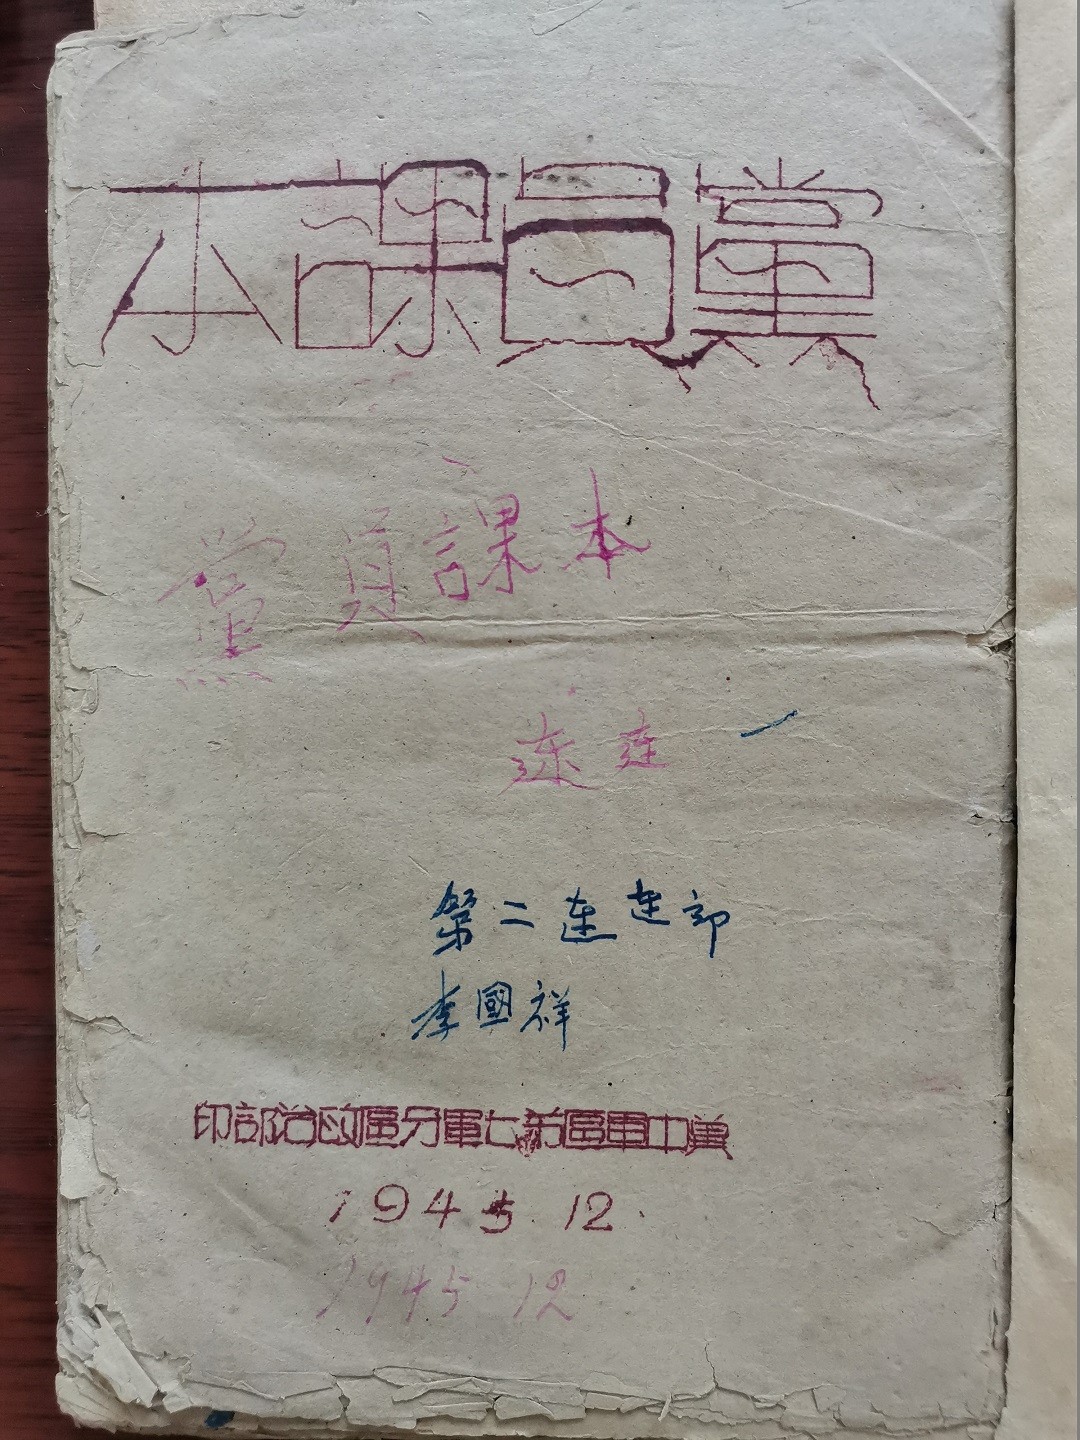 黨員課本
黨員課本
第二連連部
李國祥
冀中軍區第七軍分區政治部印
1945 12
1945 12